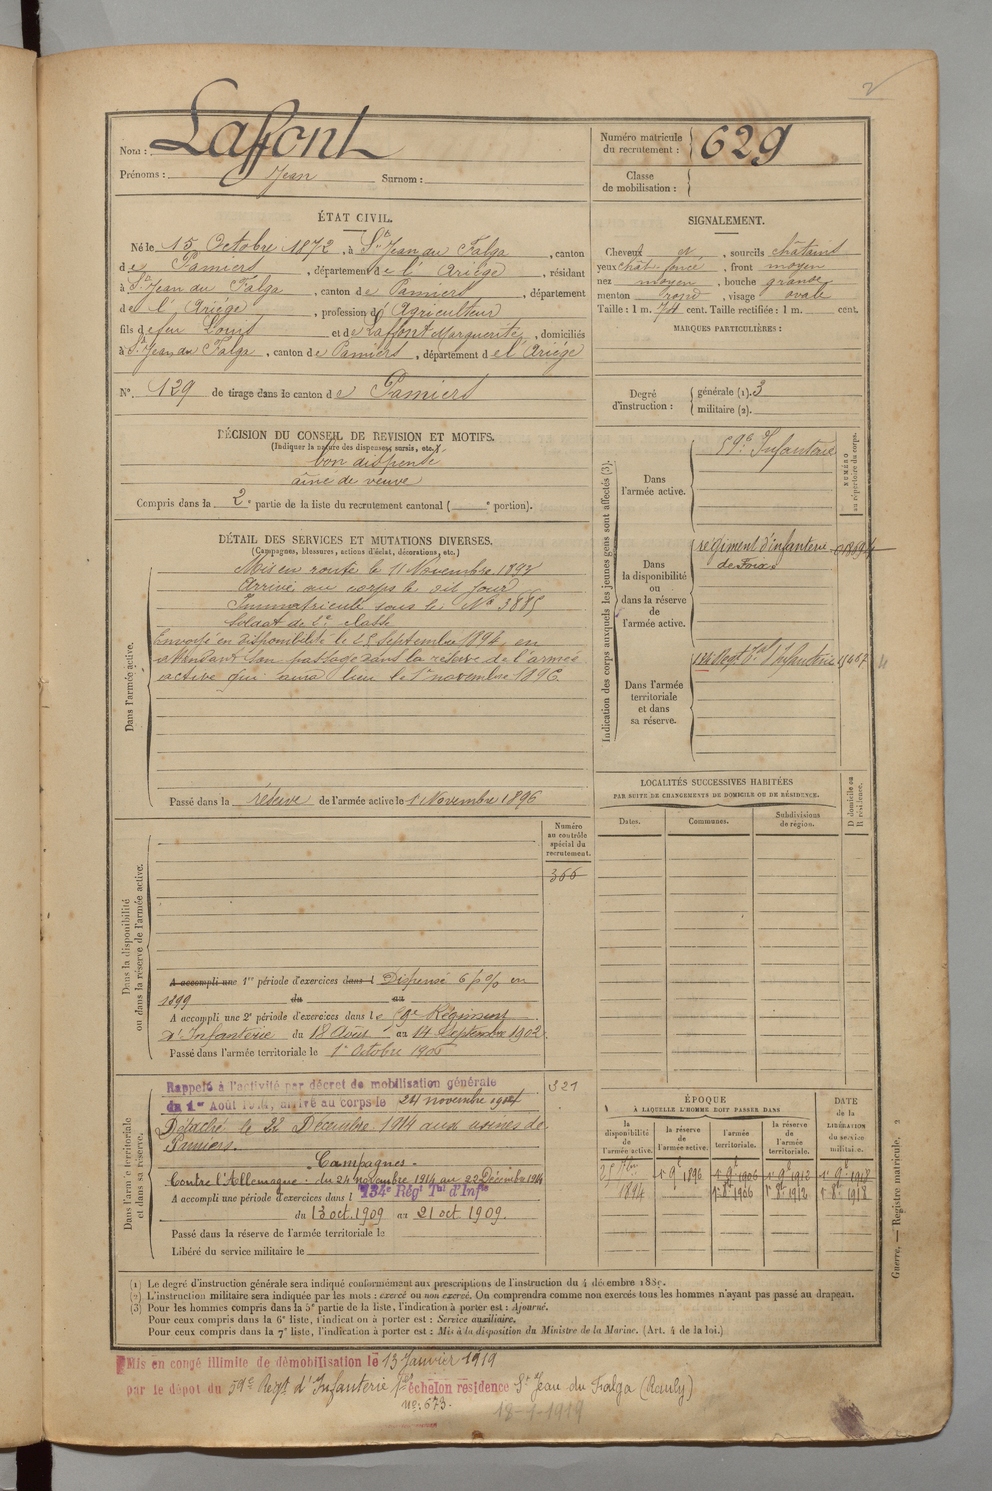 2
Nom : Laffont
Prénoms : Jean Surnom :
Numéro matricule du recrutement : 629
Classe de mobilisation :
ÉTAT CIVIL.
Né le 15 Octobre 1872, à St Jean du Falga, canton
de Pamiers, département de l'Ariège, résidant
à St Jean du Falga, canton de Pamiers, département
de l'Ariége, profession d'Agriculteur
fils de feu Louis et de Laffont Marguerite, domiciliés
à St Jean du Falga, canton de Pamiers, département de l'Ariége
N° 129 de tirage dans le canton de Pamiers
SIGNALEMENT.
Cheveux et, sourcils châtains
yeux chât. foncé, front moyen
nez moyen, bouche grande
menton rond, visage ovale
Taille : 1 m. 74 cent. Taille rectifiée : 1 m. cent.
MARQUES PARTICULIÈRES :
Degré d'instruction : générale (1). 3
militaire (2).
DÉCISION DU CONSEIL DE REVISION ET MOTIFS.
(Indiquer la nature des dispenses, sursis, etc.)
bon dispensé
aîné de veuve
Compris dans la 2e partie de la liste du recrutement cantonal ( e portion).
DÉTAIL DES SERVICES ET MUTATIONS DIVERSES.
(Campagnes, blessures, actions d'éclat, décorations, etc.)
Dans l'armée active.
Mis en route le 11 Novembre 1893
Arrivé au corps le dit jour
Immatriculé sous le No 3885
Soldat de 2e classe
Envoyé en disponibilité le 25 Septembre 1894, en
attendant son passage dans la réserve de l'armée
active qui aura lieu le 1er novembre 1896
Passé dans la réserve de l'armée active le 1 Novembre 1896
Indication des corps auxquels les jeunes gens sont affectés (3).
NUMÉRO au répertoire du corps.
Dans l'armée active.
59e Infanterie
Dans la disponibilité ou dans la réserve de l'armée active.
régiment d'infanterie
de Foix
Dans l'armée territoriale et dans sa réserve.
134 Regt Tal d'Infanterie
LOCALITÉS SUCCESSIVES HABITÉES
PAR SUITE DE CHANGEMENTS DE DOMICILE OU DE RÉSIDENCE.
Dates. Communes. Subdivisions de région. D domicile ou R résidence.
Dans la disponibilité ou dans la réserve de l'armée active.
Numéro au contrôle spécial du recrutement.
366
A accompli une 1re période d'exercices dans l Dispensé 6 p % en
1899 du au
A accompli une 2e période d'exercices dans le 59e Régiment
d'Infanterie du 18 Août au 14 Septembre 1902
Passé dans l'armée territoriale le 1er Octobre 1906
Dans l'armée territoriale et dans sa réserve.
Rappelé à l'activité par décret de mobilisation générale
du 1er Août 1914, arrivé au corps le 24 novembre 1914
321
Détaché le 22 Décembre 1914 aux usines de
Pamiers.
Campagnes.
Contre l'Allemagne : du 24 novembre 1914 au 22 Décembre 1914
A accompli une période d'exercices dans l 134e Régt Tal d'Infie
du 13 oct. 1909 au 21 oct 1909.
Passé dans la réserve de l'armée territoriale le
Libéré du service militaire le
ÉPOQUE
À LAQUELLE L'HOMME DOIT PASSER DANS
la disponibilité de l'armée active. la réserve de l'armée active. l'armée territoriale. la réserve de l'armée territoriale.
DATE de la LIBÉRATION du service militaire.
25 7bre 1894 1er 9e 1896 1er 9e 1906 1er 9e 1912 1er 9e 1918
1er 8e 1906 1er 8e 1912 1er 8e 1918
(1) Le degré d'instruction générale sera indiqué conformément aux prescriptions de l'instruction du 4 décembre 1889.
(2) L'instruction militaire sera indiquée par les mots : exercé ou non exercé. On comprendra comme non exercés tous les hommes n'ayant pas passé au drapeau.
(3) Pour les hommes compris dans la 5e partie de la liste, l'indication à porter est : Ajourné.
Pour ceux compris dans la 6e liste, l'indication à porter est : Service auxiliaire.
Pour ceux compris dans la 7e liste, l'indication à porter est : Mis à la disposition du Ministre de la Marine. (Art. 4 de la loi.)
Guerre. — Registre matricule. 2
Mis en congé illimité de démobilisation le 13 Janvier 1919
par le dépôt du 59e Regt d'Infanterie 1er échelon résidence St Jean du Falga (Rouly)
no. 673.
18-1-1919